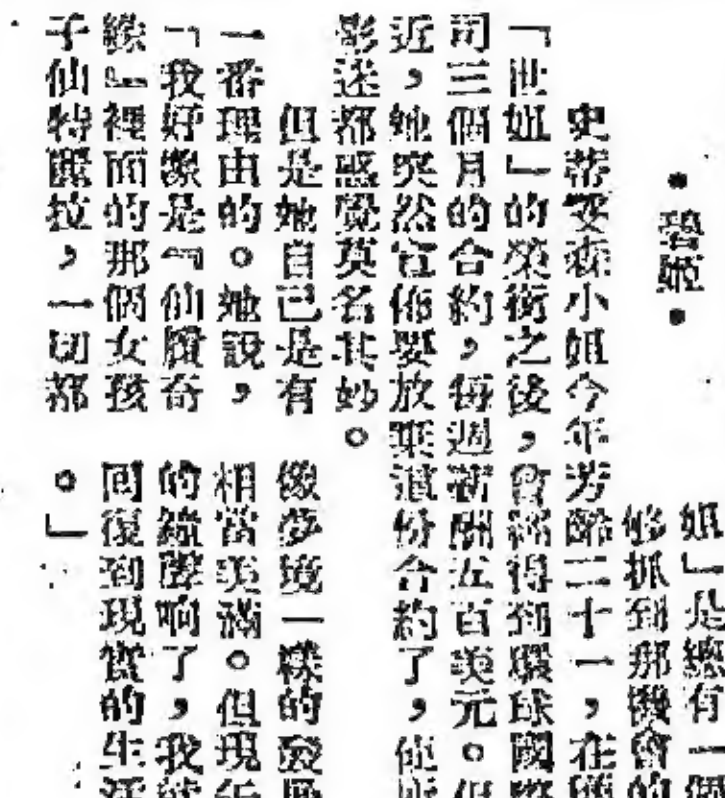 •碧姬•
姐」是總有一個
够抓到那機會的
史蒂雯森小姐今年芳齡二十一，在獲
「世姐」的榮銜之後，曾經得到環球國際
司三個月的合約，每週薪酬五百美元。但
近，她突然宣佈要放棄這份合約了，使
影迷都感覺莫名其妙。
但是她自己是有
一番理由的。她說，
「我好像是『仙履奇
緣』裡面的那個女孩
子仙特麗拉，一切都
像夢境一樣的發展
相當美滿。但現在
的鐘聲响了，我就
回復到現實的生活
。」